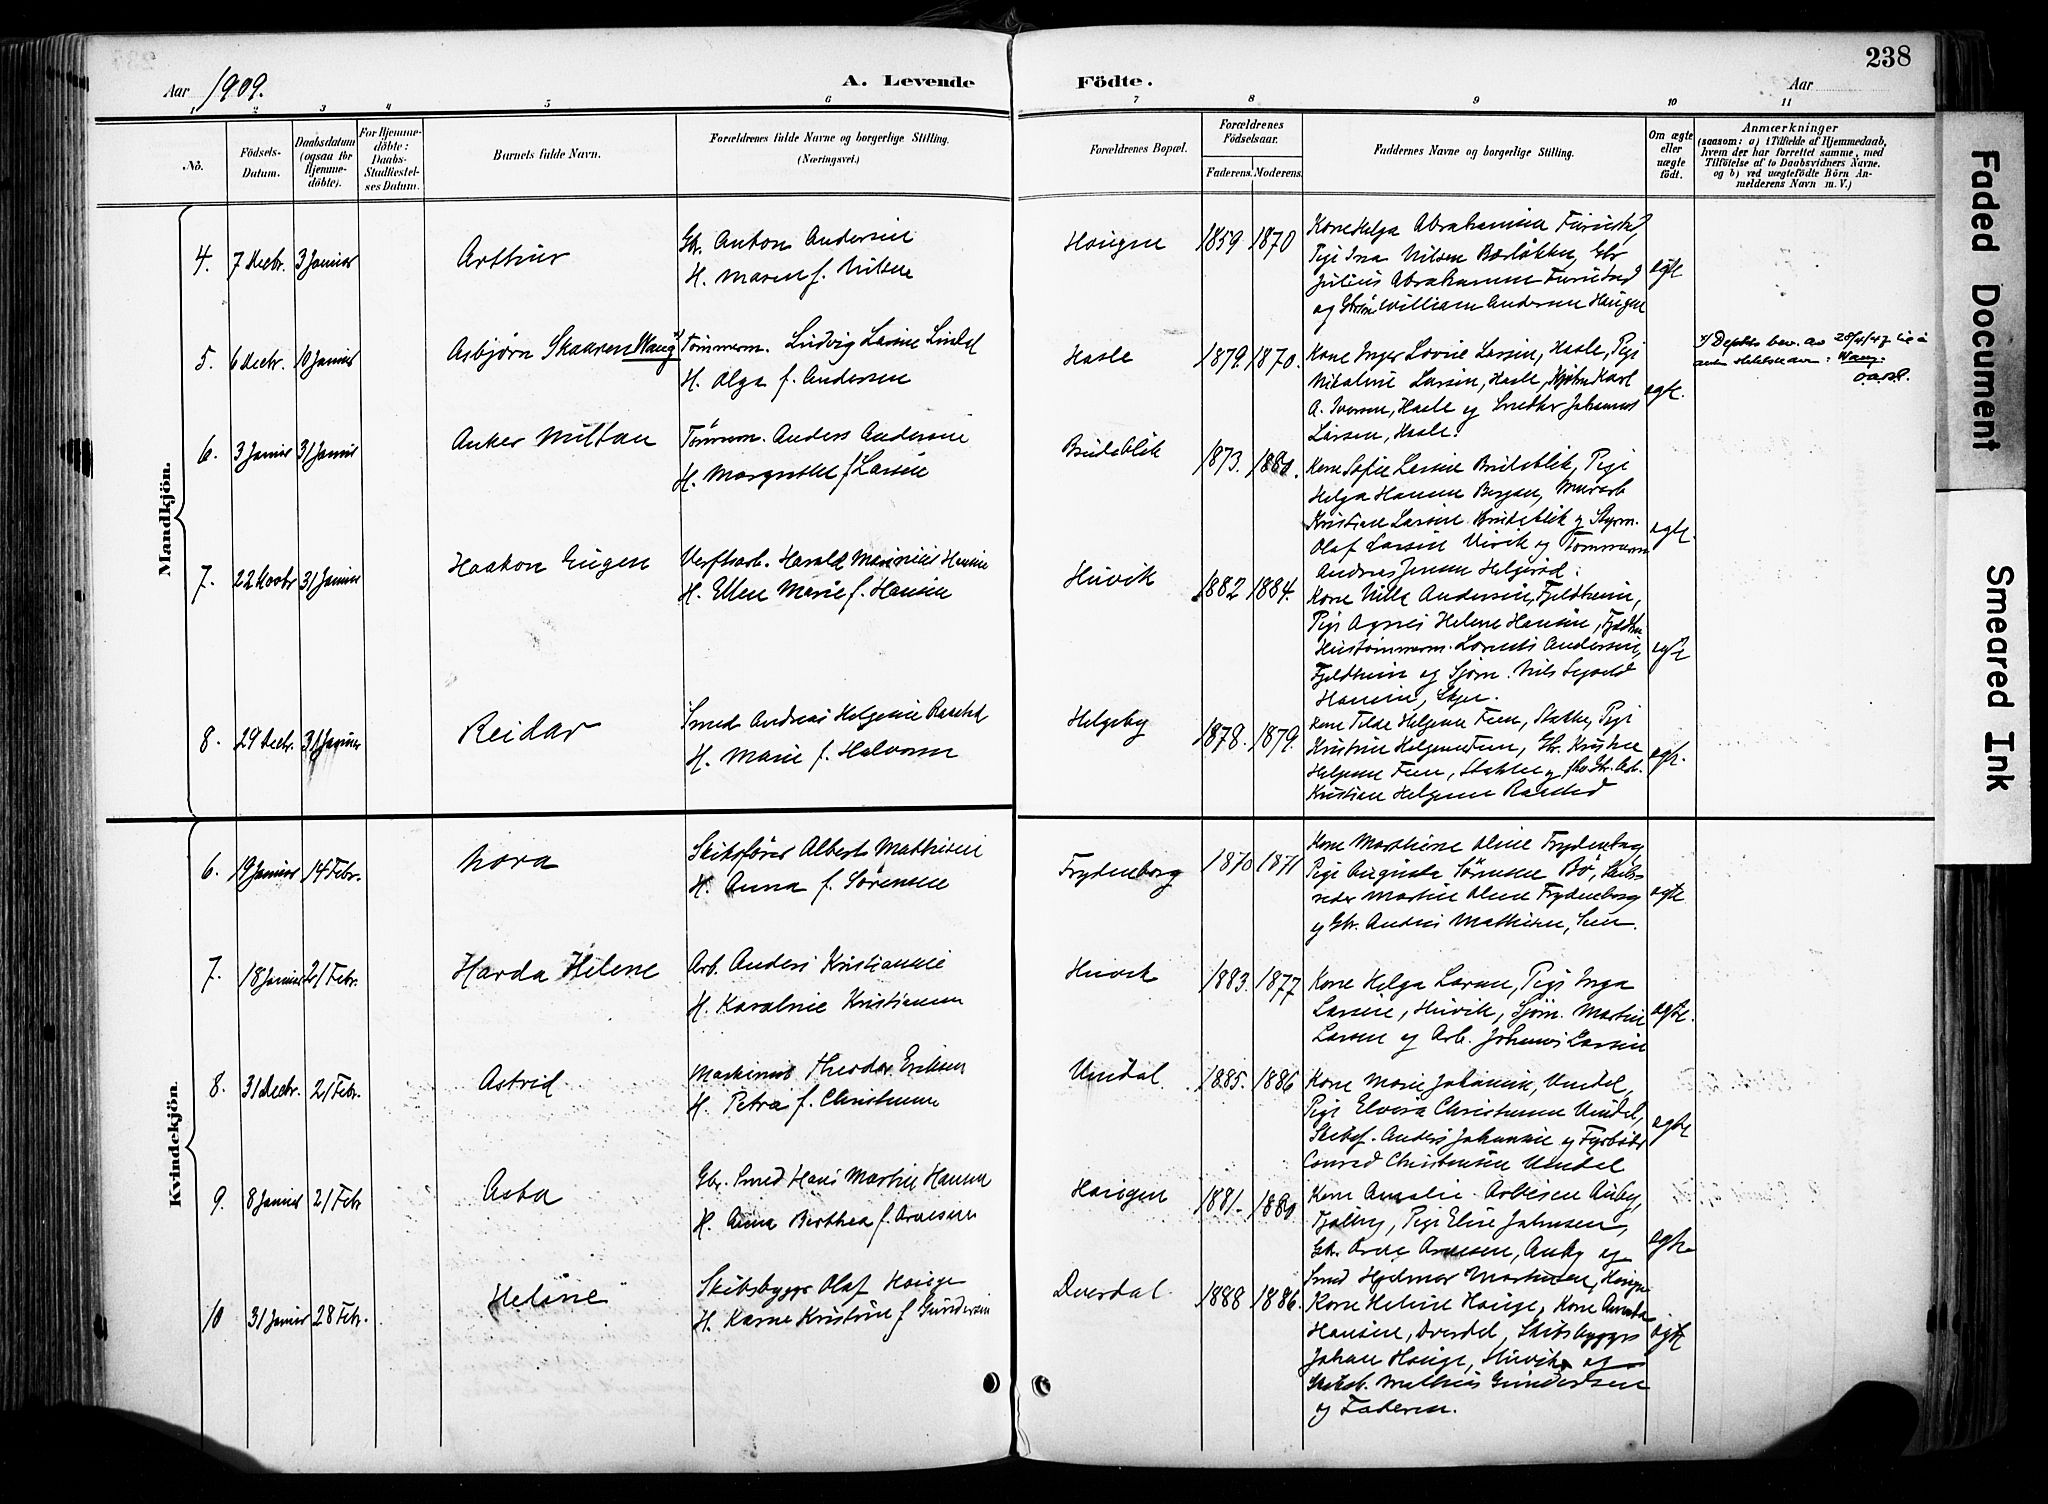 238
Aar 1909.
A. Levende Födte.
Aar
1 2 3 4 5 6 7 8 9 10 11
No.
Födsels-Datum.
Daabsdatum (ogsaa for Hjemme-döbte).
For Hjemme-döbte: Daabs-Stadfæstel-ses Datum.
Barnets fulde Navn.
Forældrenes fulde Navne og borgerlige Stilling. (Næringsvei.)
Forældrenes Bopæl.
Forældrenes Födselsaar.
Faderens. Moderens.
Faddernes Navne og borgerlige Stilling.
Om ægte eller uægte födt.
Anmærkninger
(saasom: a) i Tilfælde af Hjemmedaab, hvem der har forrettet samme, med Tilföielse af to Daabsvidners Navne, og b) ved uægtefödte Börn An-melderens Navn m. V.)
Mandkjön.
4. 7 Decbr. 3 Januar Arthur
Gbr. Anton Andersen
H. Maren f. Nilsen
Haugen 1859. 1870
Kone Helga Abrahamsen Furustad,
Pige Ina Nilsen Berløkken, Gbr
Julius Abrahamsen Furustad
og William Andersen Haugen
ægte
5. 6 Decbr. 10 Januar Asbjørn Skaaren Wang
Tømmerm. Ludvig Larsen
H. Olga f. Andersen
Hasle 1879. 1870.
Kone Inger Lovise Larsen, Hasle, Pige
Nikoline Larsen, Hasle, Karl
A. Iversen, Hasle og Johannes
Larsen, Hasle.
ægte.
Wang.
6. 3 Januar 31 Januar Anker Milton
Tømmerm. Anders Andersen
H. Margrethe f. Larsen
Brudeblik 1873. 1880.
Kone Sofie Larsen Brudeblik, Pige
Helga Hansen Bergan, Murarb
Kristian Larsen Brudeblik og Styrm.
Olaf Larsen Vivik og Tømmerm
Andreas Jensen Helgerød.
ægte.
7. 22 Novbr 31 Januar Haakon Eugen
Verftsarb. Harald Marinius Hansen
H. Ellen Marie f. Hansen
Husvik 1882 1884.
Kone Andersen, Fjeldheim,
Pige Agnes Helene Hansen,
Hustømmerm. Andersen,
Fjeldheim og Sjøm. Nils
Hansen,
ægte
8. 29 Decbr. 31 Januar Reidar
Smed Andreas Helgesen Raastad
H. Marie f. Halvorsen
Helgeby 1878. 1879.
Kone Tilda Helgesen Feen, Stokke, Pige
Kristine Helgesen Feen, Gbr. Kristen
Helgesen Feen, Stokke og
Kristian Helgesen Raastad
ægte.
Kvindekjön.
6. 19 Januar 14 Febr. Nora
Skibsfører Albert Mathisen
H. Anna f. Sørensen
Frydenborg 1870 1871
Kone Marthine Olsen Frydenborg
Pige Augusta Sørensen Bø, Skibs-
reder Martin Olsen Frydenborg
og Gbr. Anders Mathisen, Sem.
ægte
7. 18 Januar 21 Febr. Harda Helene
Arb. Anders Kristiansen
H. Karoline Kristiansen
Husvik 1883. 1877
Kone Helga Larsen, Pige Inga
Larsen, Husvik, Sjøm. Martin
Larsen og Arb. Johannes Larsen
ægte.
8. 31 Decbr. 21 Febr. Astrid
Maskinist Theodor Eriksen
H. Petra f. Christensen
Unndal. 1885. 1886
Kone Marie Johansen, Unndal,
Pige Elvira Christensen Unndal,
Skibsf. Anders Johansen og Fyrbøder
Conrad Christensen Unndal
ægte
9. 8 Januar 21 Febr Asta
Gbr. Smed Hans Martin Hansen
H. Anna Berthea f. Arnesen
Haugen 1881. 1880
Kone Amalie Arnesen Auby,
Tjølling, Pige Elise Johnsen,
Gbr. Arne Arnesen, Auby og
Smed Hjalmar Martinsen, Haugen
ægte
10 31 Januar 28 Febr. Helene
Skibsbygger Olaf Hauge
H. Karen Kristine f Gundersen
Dverdal 1888 1886.
Kone Helene Hauge, Kone Amanda
Hansen, Dverdal, Skibsbygger
Johan Hauge, Husvik, og
Mathias Gundersen
og Faderen.
ægte
Faded Document
Smeared Ink